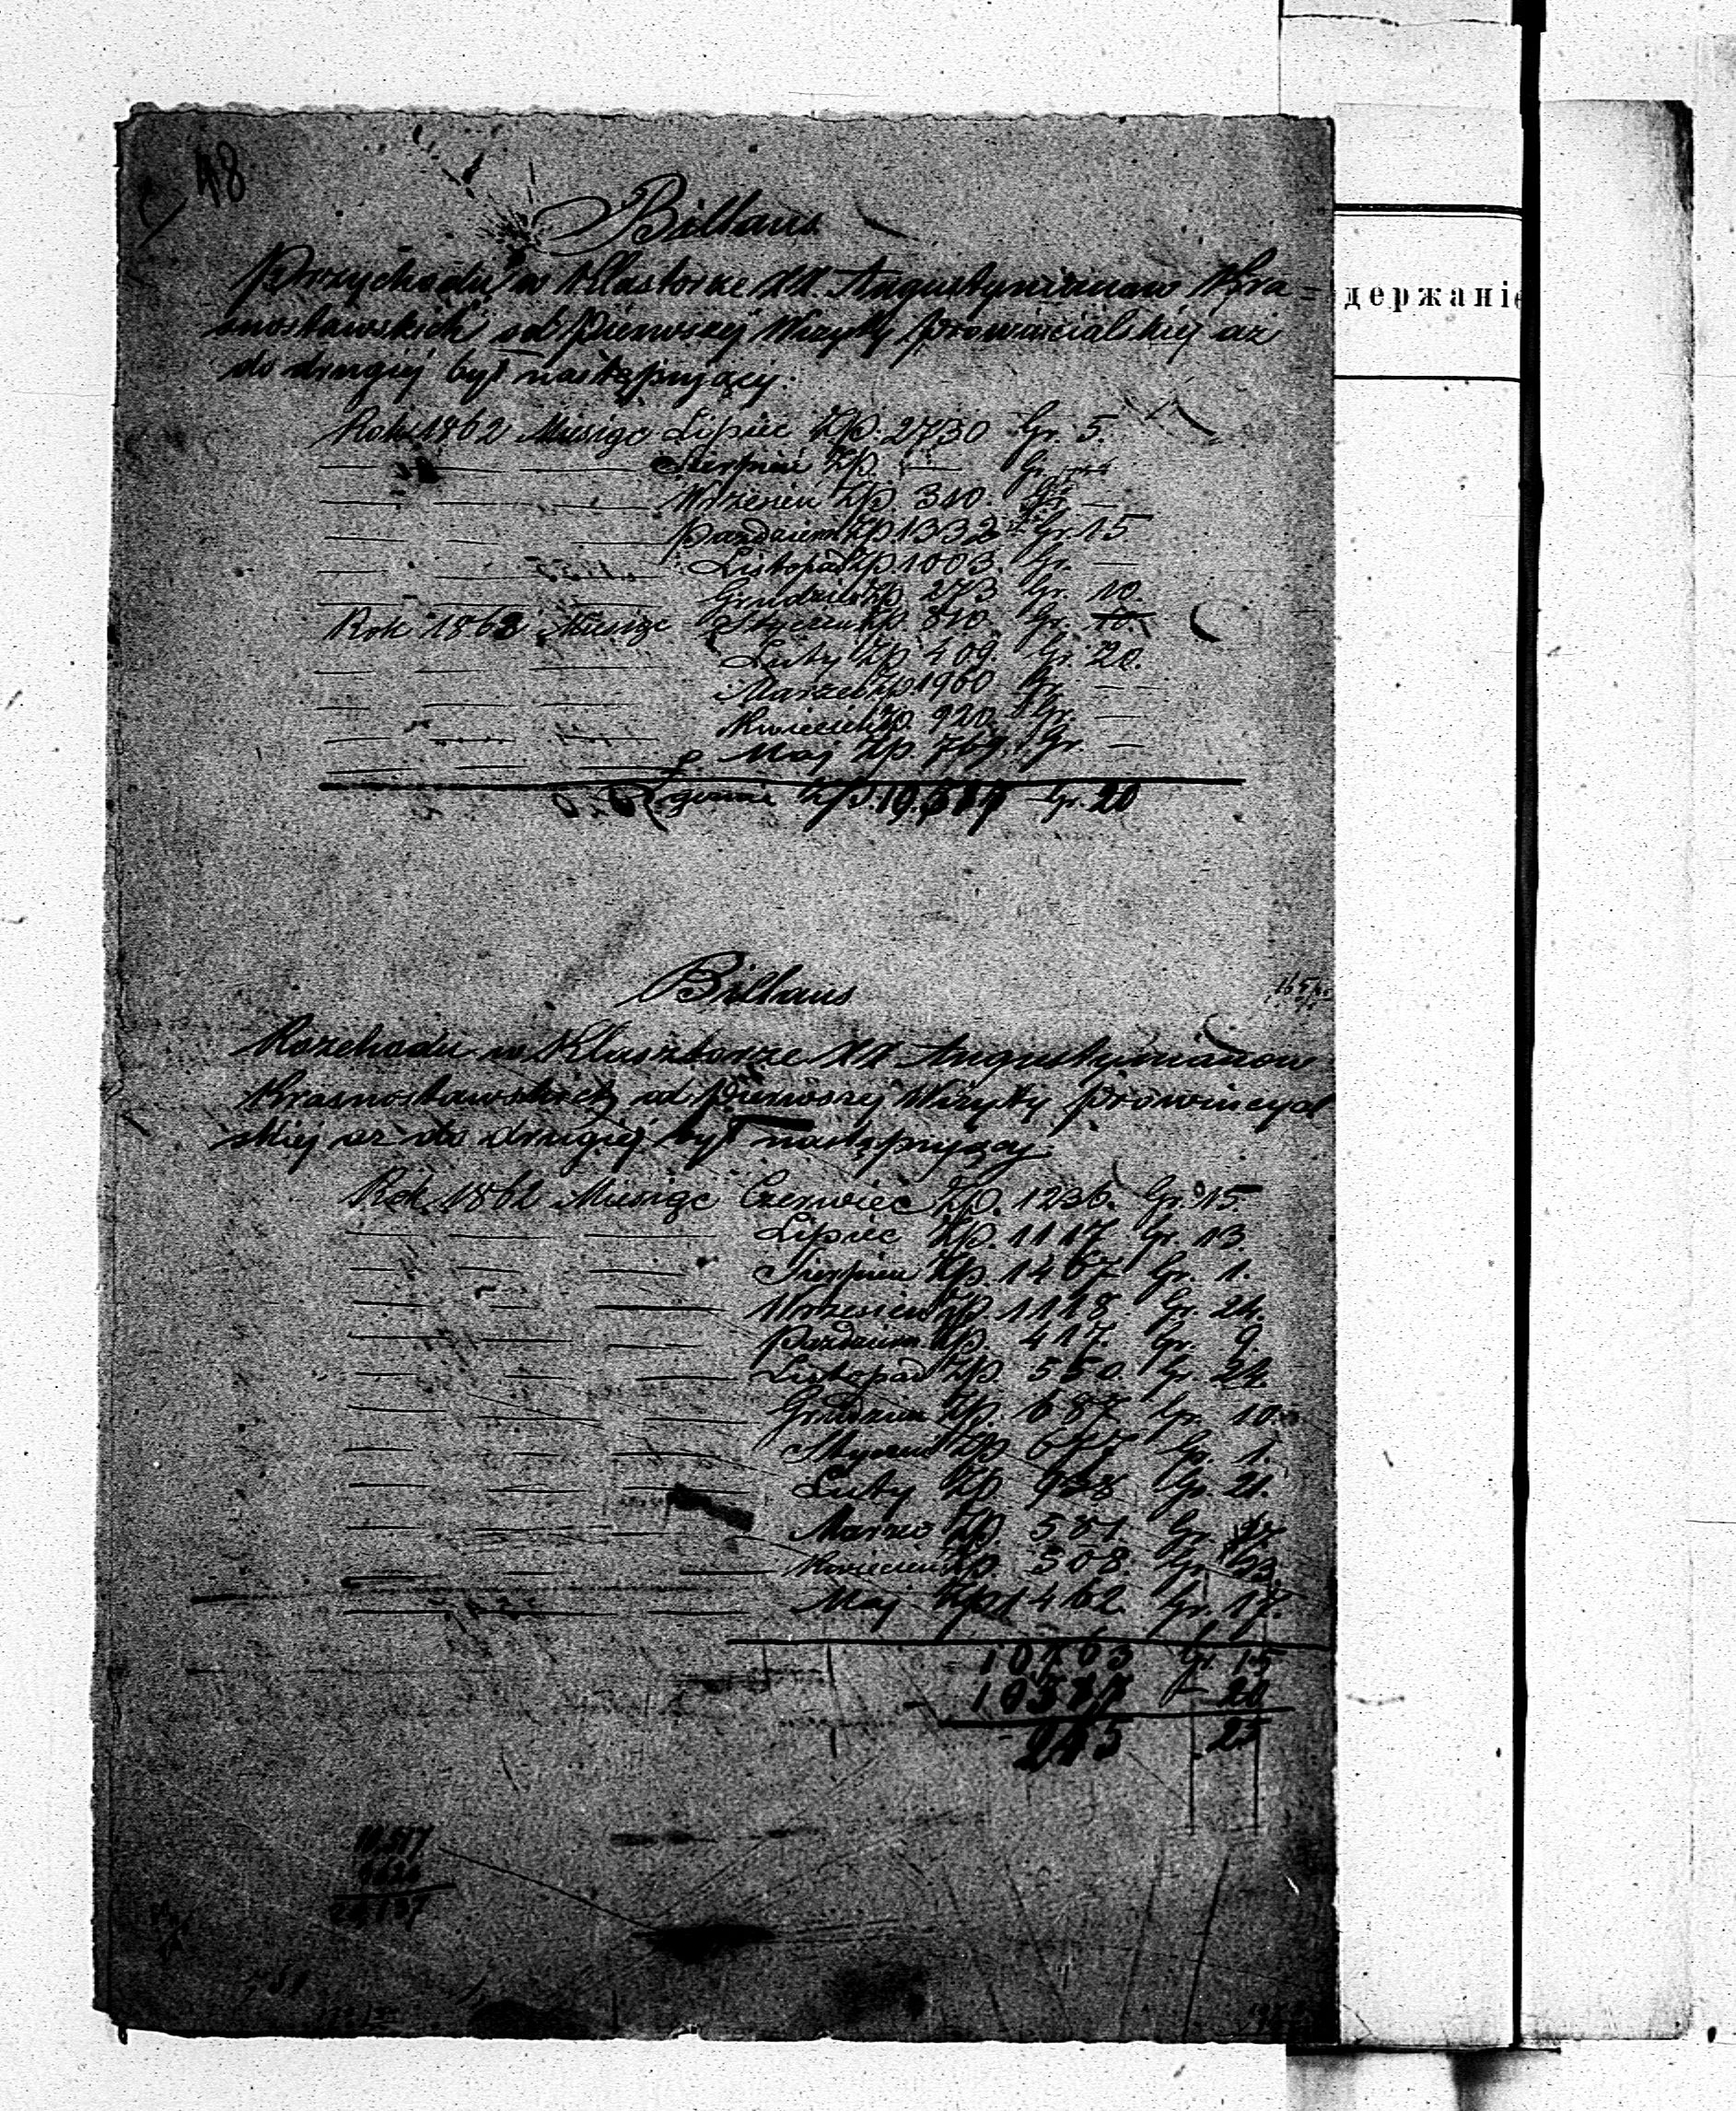 48
Billans
Przychodu w Klasztorze XX. Augustynianow Kra=
snostawskich od pierwszej Wizyty prowincialskiej aż
do drugiej był następujący:
Rok 1862 Miesiąc Lipiec Złp. 2730 Gr. 5.
— — — Sierpień Złp. — Gr. —
— — — Wrzesień Złp. 340. Gr. —
— — — Paździer. Złp. 1332 Gr. 15
— — — Listopad Złp. 1003. Gr. —
— — — Grudzień Złp. 273 Gr. 10.
Rok 1863 Miesiąc Styczeń Złp. 840. Gr.
— — — Luty Złp. 409. Gr. 20.
— — — Marzec Złp. 1960 Gr. —
— — — Kwiecień Złp. 920. Gr. —
— — — Maj Złp. 769. Gr. —
Złp. 10,577 Gr. 20
Billans
Rozchodu w Klasztorze XX Augustynianow
Krasnostawskich od pierwszej Wizyty prowincyal
skiej aż do drugiej był następujący
Rok 1862 Miesiąc Czerwiec Złp. 1236. Gr. 15.
— — — Lipiec Złp. 1117 Gr. 13.
— — — Sierpień Złp. 1467 Gr. 1.
— — — Wrzesień Złp. 1118 Gr. 24.
— — — Paździer. Złp. 417. Gr. 9.
— — — Listopad Złp. 550. Gr. 24.
— — — Grudzień Złp. 687 Gr. 10.
— — — Styczeń Złp. Gr. 1.
— — — Luty Złp. Gr. 21.
— — — Marzec Złp. 581 Gr.
— — — Kwiecień Złp. 508. Gr. 13.
— — — Maj Złp. 1462 Gr. 17.
Gr. 15
10577 — 20
25
10,577
держаніе